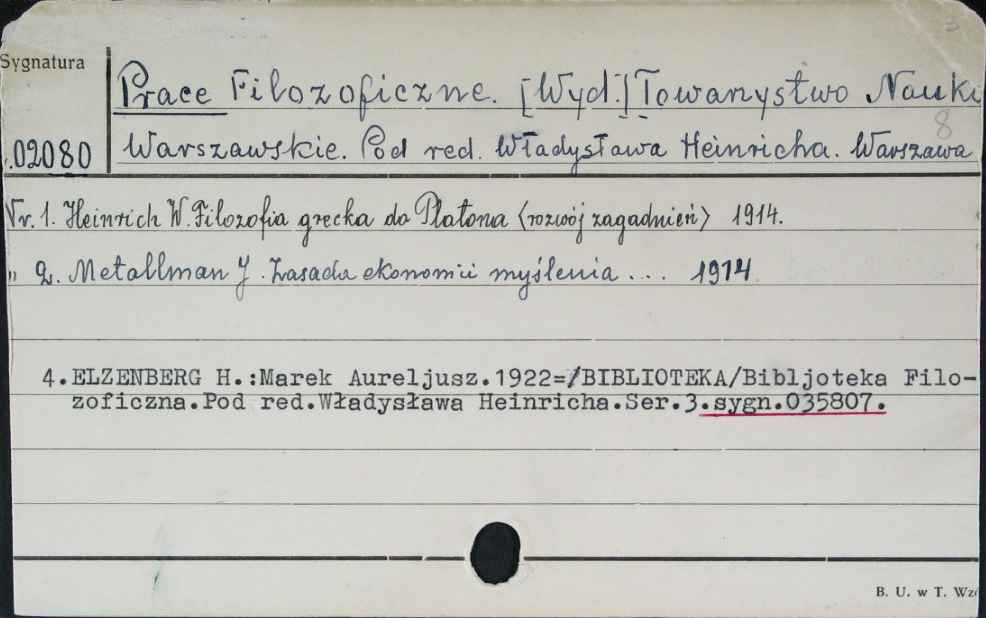 Sygnatura
Prace Filozoficzne. [Wyd.] Towarzystwo Nauk
8
.02080 Warszawskie. Pod red. Władysława Heinricha. Warszawa
Nr. 1. Heinrich W. Filozofia grecka do Platona (rozwój zagadnień) 1914.
" 2. Metallman J. Zasada ekonomii myślenia ... 1914
4. ELZENBERG H.:Marek Aureljusz.1922=/BIBLIOTEKA/Bibljoteka Filo-
zoficzna.Pod red.Władysława Heinricha.Ser.3.sygn.035807.
B. U. w T. Wz